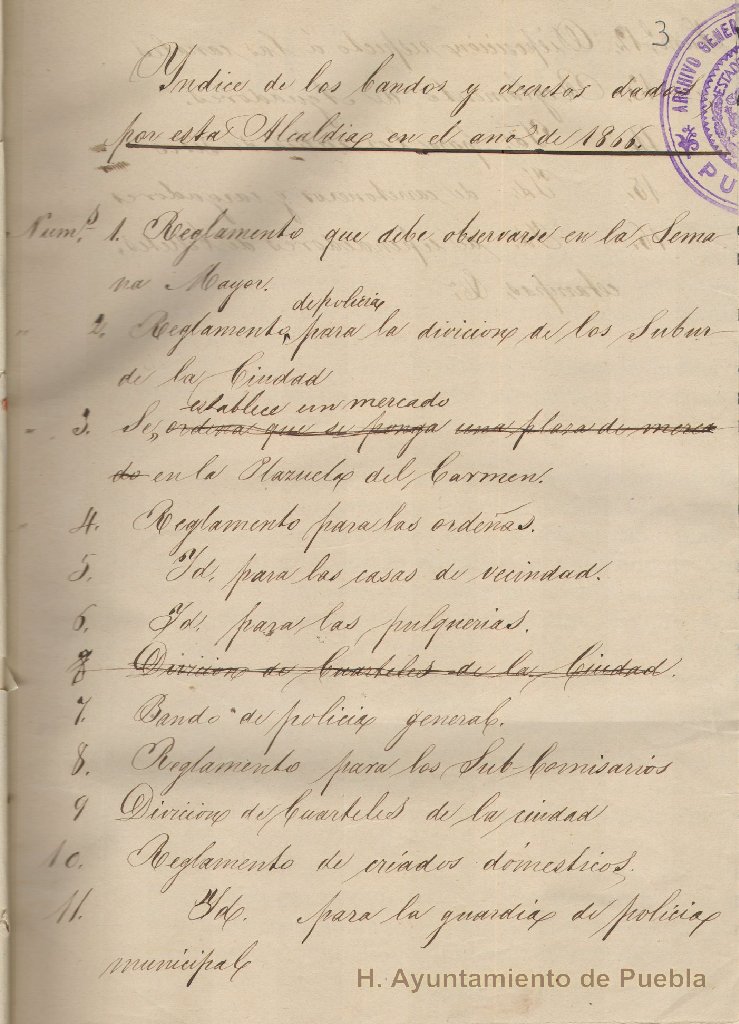 3
ARCHIVO GENER
ESTADO
PU
Yndice de los Bandos y decretos dados
por esta Alcaldia en el año de 1866.
Num.s 1. Reglamento que debe observarse en la Sema
na Mayor.
de policia
2. Reglamento para la division de los Subur
de la Ciudad
establece un mercado
3. Se ordena que se ponga una plaza de merca
do en la Plazuela del Carmen.
4. Reglamento para las ordeñas.
5. Yd. para las casas de vecindad.
6. Yd. para las pulquerias.
Division de Cuarteles de la Ciudad.
7. Bando de policia general.
8. Reglamento para los Sub-Comisarios
9 Division de Cuarteles de la ciudad
10. Reglamento de criados domesticos.
11. Yd. para la guardia de policia
municipal
H. Ayuntamiento de Puebla